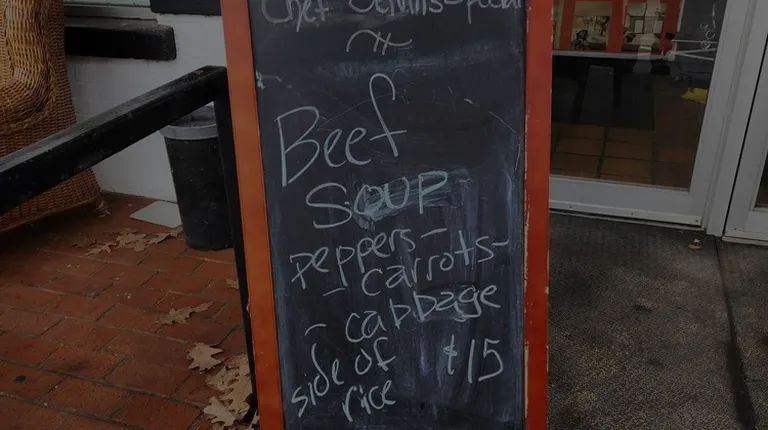 Chef Dennis
Beef
soup
peppers-
- carrots-
- cabbage
side of $15
rice